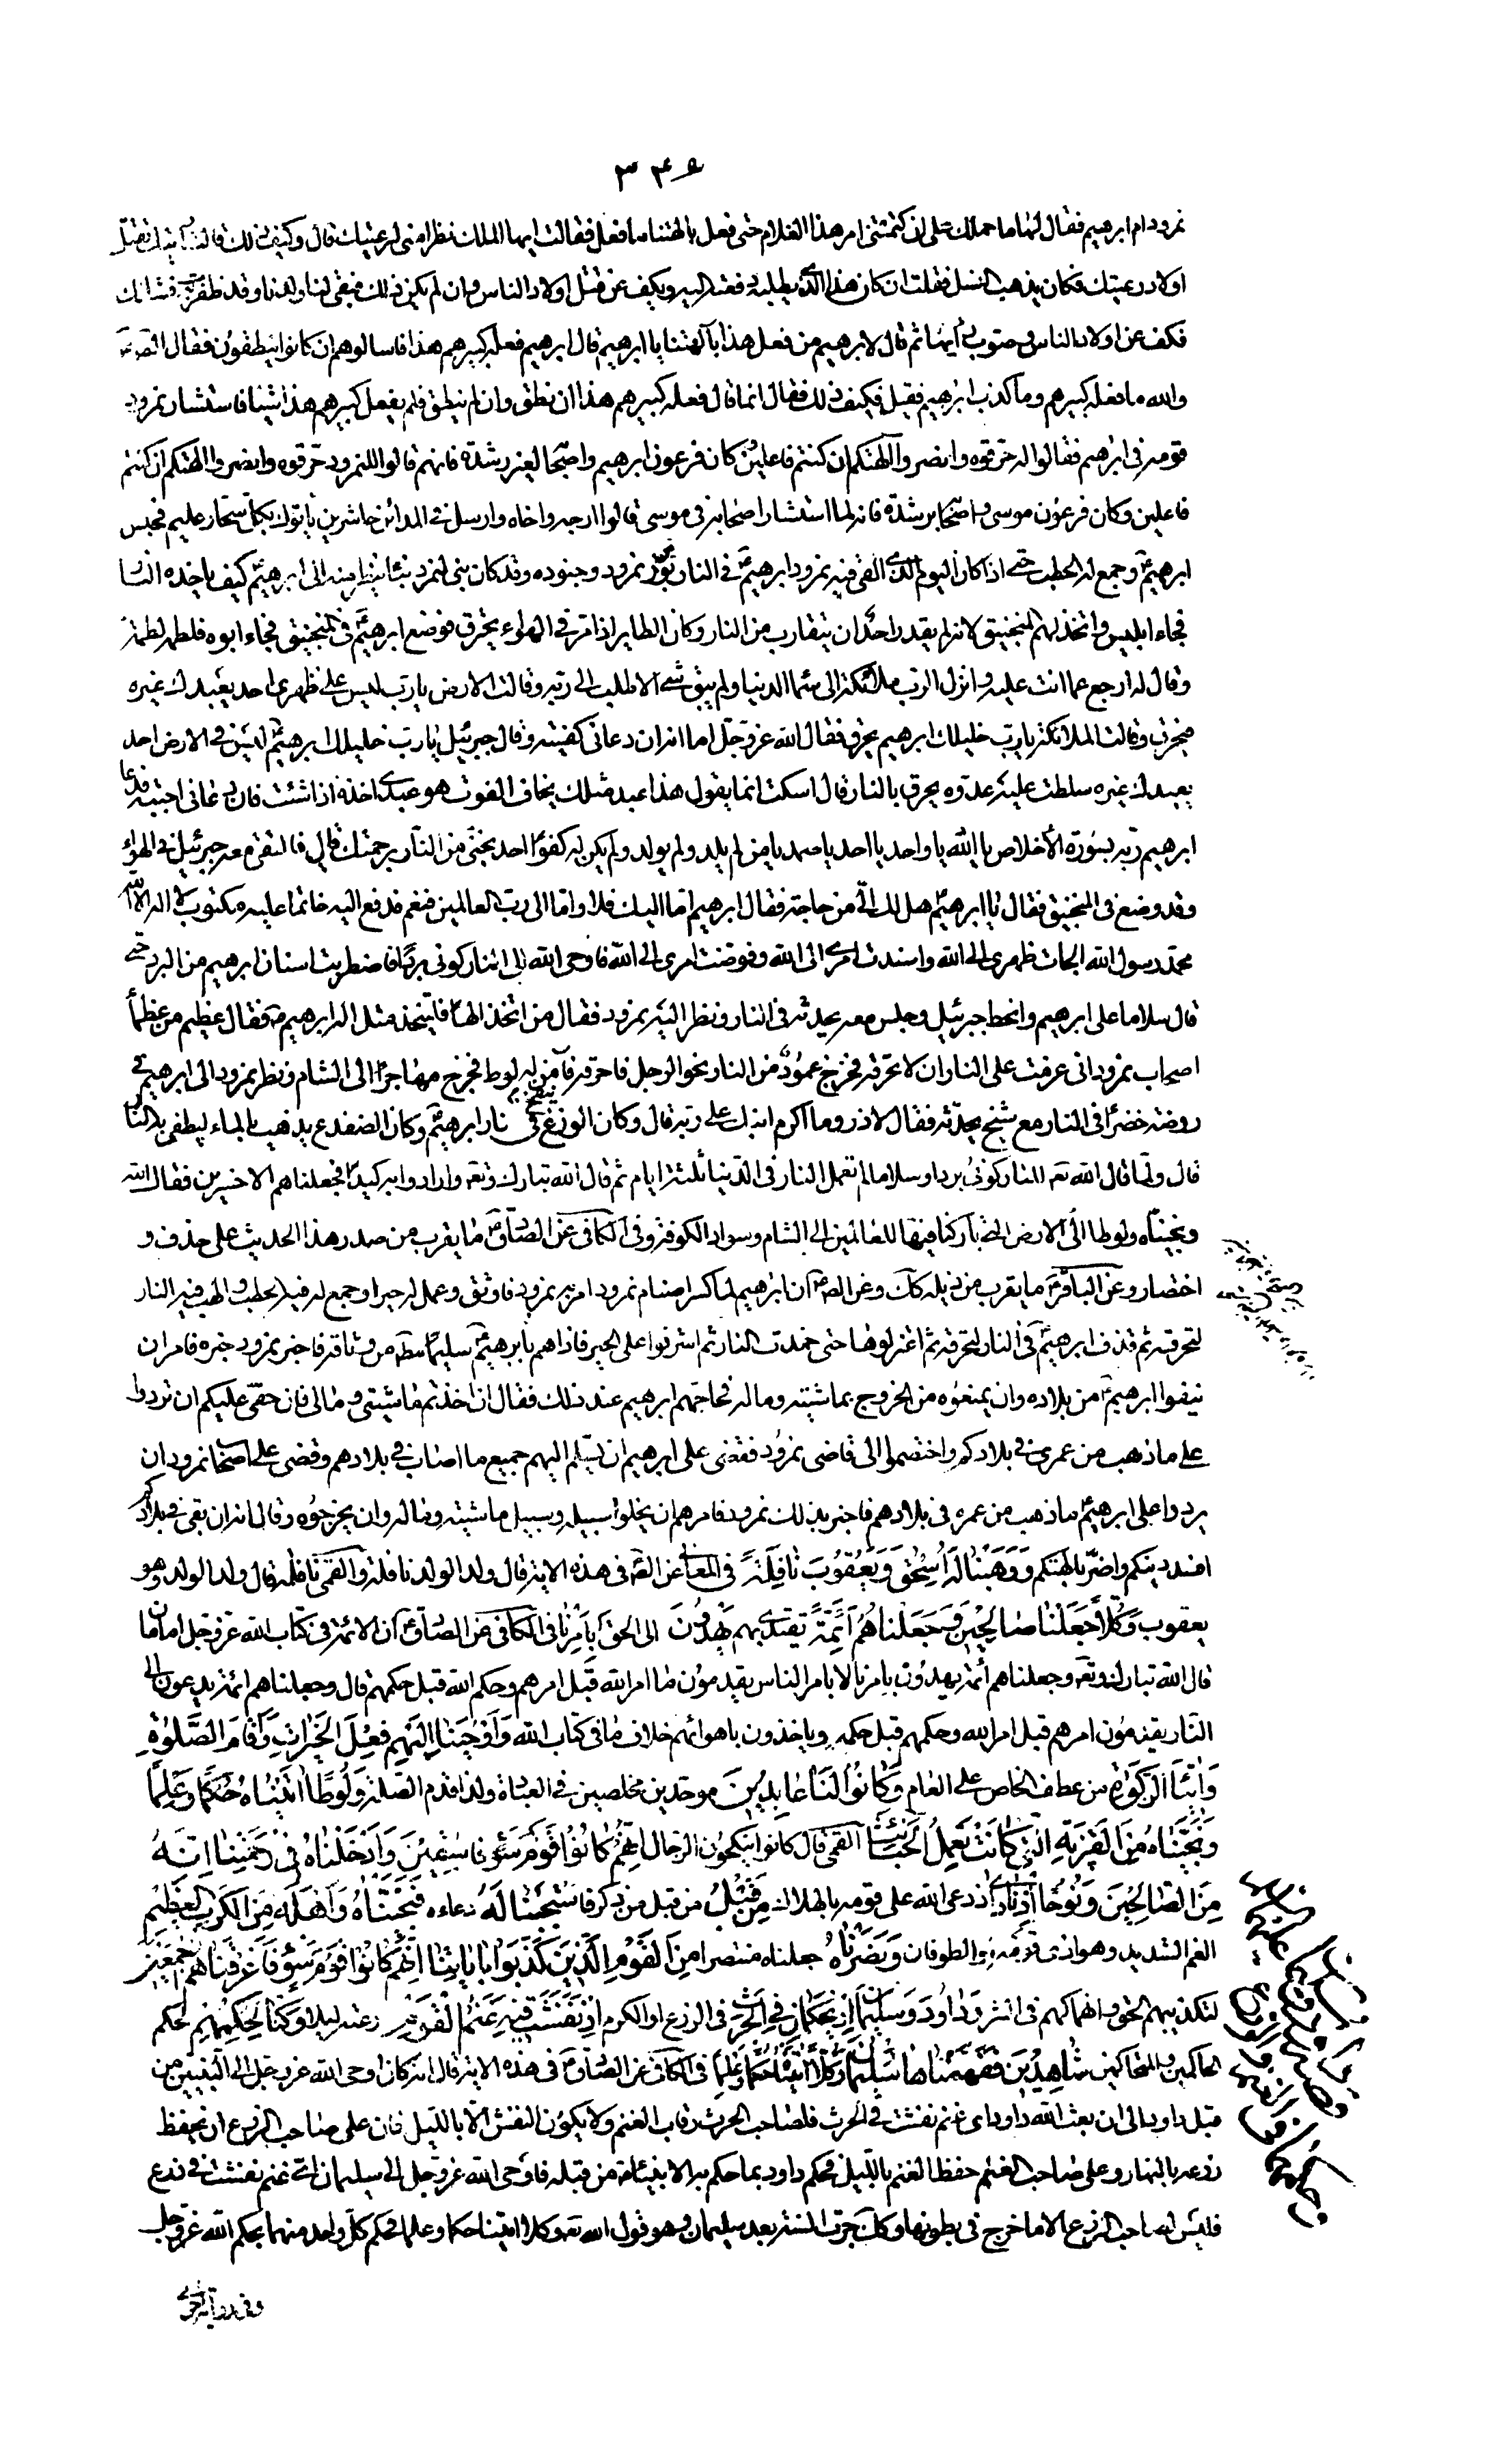 ٣٣٤
نمرود ام ابرهيم فقال لها ما حملك على ان كتمتنى امر هذا الغلام حتى فعل بالهتنا ما فعل فقالت ايها الملك نظرا منى لرعيتك قال وكيف ذلك قالت رايتك تقتل
اولاد رعيتك فكان يذهب النسل فقلت ان كان هذا الذى يطلبه دفعته اليه ويكف عن قتل اولاد الناس وان لم يكن ذلك فيبقى لنا ولدنا وقد ظفرت به فشانك
فكف عن اولاد الناس فصوب رأيها ثم قال لابرهيم من فعل هذا بآلهتنا يا ابرهيم قال ابرهيم فعله كبيرهم هذا فاسألوهم ان كانوا ينطقون فقال الصادق
والله ما فعله كبيرهم وما كذب ابرهيم فقيل فكيف ذلك فقال انما قال فعله كبيرهم هذا ان نطق وان لم ينطق فلم يفعل كبيرهم هذا شيئا فاستشار نمرود
قومه فى ابرهيم فقالوا له حرقوه وانصروا آلهتكم ان كنتم فاعلين كان فرعون ابرهيم واصحابه لغير رشدة فانهم قالوا لنمرود حرقوه وانصروا الهتكم ان كنتم
فاعلين وكان فرعون موسى واصحابه رشدة فانه لما استشار اصحابه فى موسى قالوا ارجه واخاه وارسل فى المدائن حاشرين يأتوك بكل سحار عليم فحبس
ابرهيم وجمع له الحطب حتى اذا كان اليوم الذى القى فيه نمرود ابرهيم فى النار برز نمرود وجنوده وقد كان بنى لنمرود بناء ينظر منه الى ابرهيم كيف ياخذه النار
فجاء ابليس واتخذ لهم المنجنيق لانه لم يقدر احد ان يتقارب من النار وكان الطاير اذا مر فى الهواء يحترق فوضع ابرهيم فى المنجنيق فجاء ابوه فلطمه لطمة
وقال له ارجع عما انت عليه وانزل الرب ملائكته الى سماء الدنيا ولم يبق شئ الا طلب الى ربه وقالت الارض يا رب ليس على ظهرى احد يعبدك غيره
فيحرق وقالت الملائكة يا رب خليلك ابرهيم يحرق فقال الله عز وجل اما انه ان دعانى كفيته وقال جبرئيل يا رب خليلك ابرهيم ليس فى الارض احد
يعبدك غيره سلطت عليه عدوه يحرقه بالنار قال اسكت انما يقول هذا عبد مثلك يخاف الفوت هو عبدى اخذه اذا شئت فان دعانى اجبته فدعا
ابرهيم ربه بسورة الأخلاص يا الله يا واحد يا احد يا صمد يا من لم يلد ولم يولد ولم يكن له كفوا احد نجنى من النار برحمتك قال فالتقى معه جبرئيل فى الهواء
وقد وضع فى المنجنيق فقال يا ابرهيم هل لك الى من حاجة فقال ابرهيم اما اليك فلا واما الى رب العالمين فنعم فدفع اليه خاتما عليه مكتوب لا اله الا الله
محمد رسول الله الجأت ظهرى الى الله واسندت امرى الى الله وفوضت امرى الى الله فاوحى الله الى النار كونى بردا فاضطربت اسنان ابرهيم من البرد حتى
قال سلاما على ابرهيم وانحط جبرئيل وجلس معه يحدثه فى النار ونظر اليه نمرود فقال من اتخذ الها فليتخذ مثل اله ابرهيم فقال عظيم من عظماء
اصحاب نمرود انى عزمت على النار ان لا تحرقه فخرج عمود من النار نحو الرجل فاحرقه فآمن له لوط فخرج مهاجرا الى الشام ونظر نمرود الى ابرهيم فى
روضة خضراء فى النار مع شيخ يحدثه فقال لاذر وما اكرم ابنك على ربه قال وكان الوزغ ينفخ فى نار ابرهيم وكان الضفدع يذهب بالماء ليطفى به النار
قال ولما قال الله تعه للنار كونى بردا وسلاما لم تعمل النار فى الدنيا ثلثة ايام ثم قال الله تبارك وتعه وارادوا به كيدا فجعلناهم الاخسرين فقال الله
ونجيناه ولوطا الى الارض التى باركنا فيها للعالمين الى الشام وسواد الكوفة وفى الكافى عن الصادق ما يقرب من صدر هذا الحديث على حذف و
اختصار وعن الباقر ما يقرب من ذيله كك وعن الصم ان ابرهيم لما كسر اصنام نمرود امر به نمرود فاوثق وعمل له حيرا وجمع له فيه الحطب والهب فيه النار
لتحرقه ثم قذف ابرهيم فى النار لتحرقه ثم اعتزلوها حتى خمدت النار ثم اشرفوا على الحير فاذا هم بابرهيم سليما مطلقا من وثاقه فاخبر نمرود خبره فامر ان
ينفوا ابرهيم من بلاده وان يمنعوه من الخروج بماشيته وماله فحاجهم ابرهيم عند ذلك فقال ان اخذتم ماشيتى ومالى فان حقى عليكم ان تردوا
على ما ذهب من عمرى فى بلادكم واختصموا الى قاضى نمرود فقضى على ابرهيم ان يسلم اليهم جميع ما اصاب فى بلادهم وقضى على اصحاب نمرود ان
يردوا على ابرهيم ما ذهب من عمره فى بلادهم فاخبر بذلك نمرود فامرهم ان يخلوا سبيله وسبيل ماشيته وماله وان يخرجوه وقال انه ان بقى فى بلادكم
افسد دينكم واضر بالهتكم وَوَهَبْنَا لَهُ اِسْحٰقَ وَيَعْقُوبَ نَافِلَةً فى المعانى عن الصم فى هذه الاية قال ولد الولد نافلة والقمى نافلة قال ولد الولد وهو
يعقوب وَكُلًّا جَعَلْنَا صَالِحِينَ وَجَعَلْنَاهُمْ اَئِمَّةً يقتدى بهم يَهْدُونَ الى الحق بِاَمْرِنَا فى الكافى عن الصادق ان الائمة فى كتاب الله عز وجل امامان
قال الله تبارك وتعه وجعلناهم أئمة يهدون بامرنا لا بامر الناس يقدمون ما امر الله قبل امرهم وحكم الله قبل حكمهم قال وجعلناهم ائمة يدعون الى
النار يقدمون امرهم قبل امر الله وحكمهم قبل حكمه وياخذون باهوائهم خلاف ما فى كتاب الله وَاَوْحَيْنَا اِلَيْهِمْ فِعْلَ الْخَيْرَاتِ وَاِقَامَ الصَّلٰوةِ
وَاِيتَاءَ الزَّكٰوةِ من عطف الخاص على العام وَكَانُوا لَنَا عَابِدِينَ موحدين مخلصين فى العبادة ولذا قدم الصلة وَلُوطًا اٰتَيْنَاهُ حُكْمًا وَعِلْمًا
وَنَجَّيْنَاهُ مِنَ الْقَرْيَةِ الَّتِى كَانَتْ تَعْمَلُ الْخَبَائِثَ القمى قال كانوا ينكحون الرجال اِنَّهُمْ كَانُوا قَوْمَ سَوْءٍ فَاسِقِينَ وَاَدْخَلْنَاهُ فِى رَحْمَتِنَا اِنَّهُ
مِنَ الصَّالِحِينَ وَنُوحًا اِذْ نَادٰى اذ دعى الله على قومه بالهلاك مِنْ قَبْلُ من قبل من ذكر فَاسْتَجَبْنَا لَهُ دعاءه فَنَجَّيْنَاهُ وَاَهْلَهُ مِنَ الْكَرْبِ الْعَظِيمِ
الغم الشديد وهو اذى قومه والطوفان وَنَصَرْنَاهُ جعلناه منتصرا مِنَ الْقَوْمِ الَّذِينَ كَذَّبُوا بِاٰيَاتِنَا اِنَّهُمْ كَانُوا قَوْمَ سَوْءٍ فَاَغْرَقْنَاهُمْ اَجْمَعِينَ
لتكذيبهم الحق وانهماكهم فى الشر وَدَاوُدَ وَسُلَيْمَانَ اِذْ يَحْكُمَانِ فِى الْحَرْثِ فى الزرع او الكرم اِذْ نَفَشَتْ فِيهِ غَنَمُ الْقَوْمِ رعته ليلا وَكُنَّا لِحُكْمِهِمْ لحكم
الحاكمين والمتحاكمين شَاهِدِينَ فَفَهَّمْنَاهَا سُلَيْمَانَ وَكُلًّا اٰتَيْنَا حُكْمًا وَعِلْمًا فى الكافى عن الصادق فى هذه الاية قال انه كان اوحى الله عز وجل الى النبيين من
قبل داود الى ان بعث الله داود اى غنم نفشت فى الحرث فلصاحب الحرث رقاب الغنم ولا يكون النفش الا بالليل فان على صاحب الزرع ان يحفظ
زرعه بالنهار وعلى صاحب الغنم حفظ الغنم بالليل فحكم داود بما حكم به الانبياء من قبله فاوحى الله عز وجل الى سليمان اى غنم نفشت فى زرع
فليس لصاحب الزرع الا ما خرج فى بطونها وكك جرت السنة بعد سليمان وهو قول الله تعه وكلا اتينا حكما وعلما فحكم كل واحد منهما بحكم الله عز وجل
وفى رواية اخرى